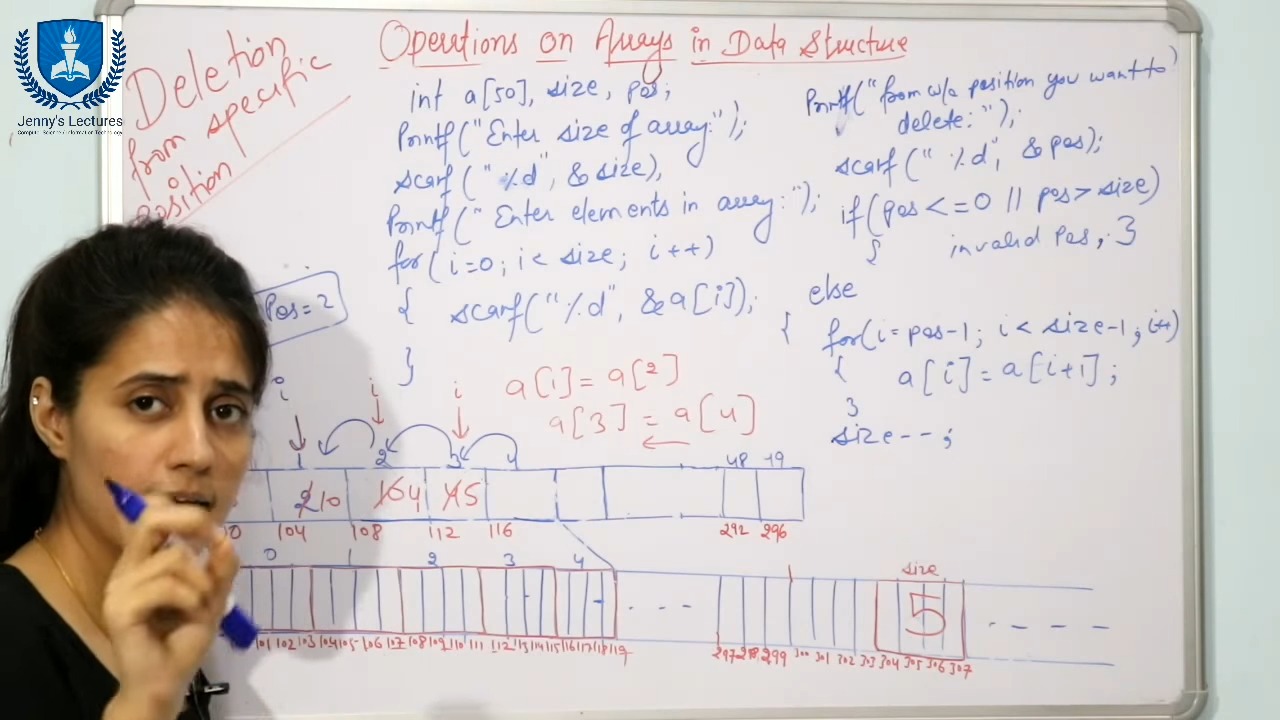 Jenny's Lectures
Computer Science / Information Technology
Deletion
from specific
position
Operations on Arrays in Data Structure
int a[50], size, pos;
Printf("Enter size of array:");
scanf("%d", &size),
Printf("Enter elements in array:");
for(i=0; i< size; i++)
{ scanf("%d", &a[i]);
}
Printf("from w/c position you want to
delete:");
scanf("%d", &pos);
if(pos<=0 || pos>size)
{ invalid Pos, }
else
{ for(i=pos-1; i< size-1; i++)
{ a[i]=a[i+1];
}
size--;
Pos=2
a[1]=a[2]
a[3]=a[4]
i i i
1 2 3 4 48 49
2 10 10 4 4 5
0 104 108 112 116 292 296
0 1 2 3 4 size
5
101 102 103 104 105 106 107 108 109 110 111 112 113 114 115 116 117 118 119 297 298 299 300 301 302 303 304 305 306 307